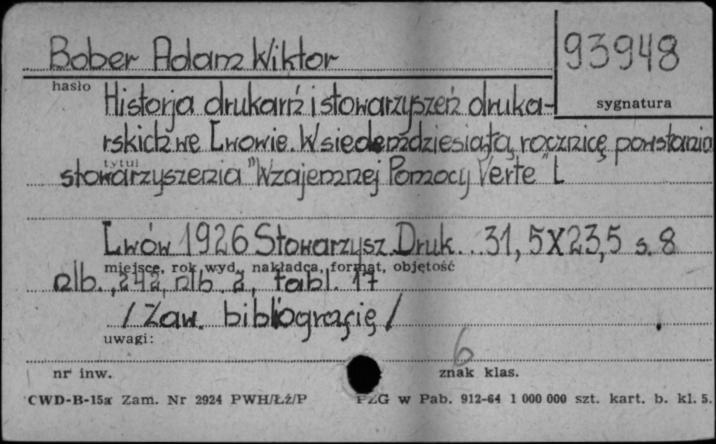 Bober Adam Wiktor
93948
hasło
sygnatura
Historja drukarń i stowarzyszeń druka-
rskich we Lwowie. W siedemdziesiątą rocznicę powstania
tytuł
stowarzyszenia "Wzajemnej Pomocy Verte" L
Lwów 1926 Stowarzysz. Druk.. 31,5X23,5 s. 8
miejsce, rok wyd., nakładca, format, objętość
nlb., 242, nlb 2, tabl. 17
/Zaw. bibliografię/
uwagi:
6
nr inw.
znak klas.
CWD-B-15a Zam. Nr 2924 PWH/Łż/P
PZG w Pab. 912-64 1 000 000 szt. kart. b. kl. 5.